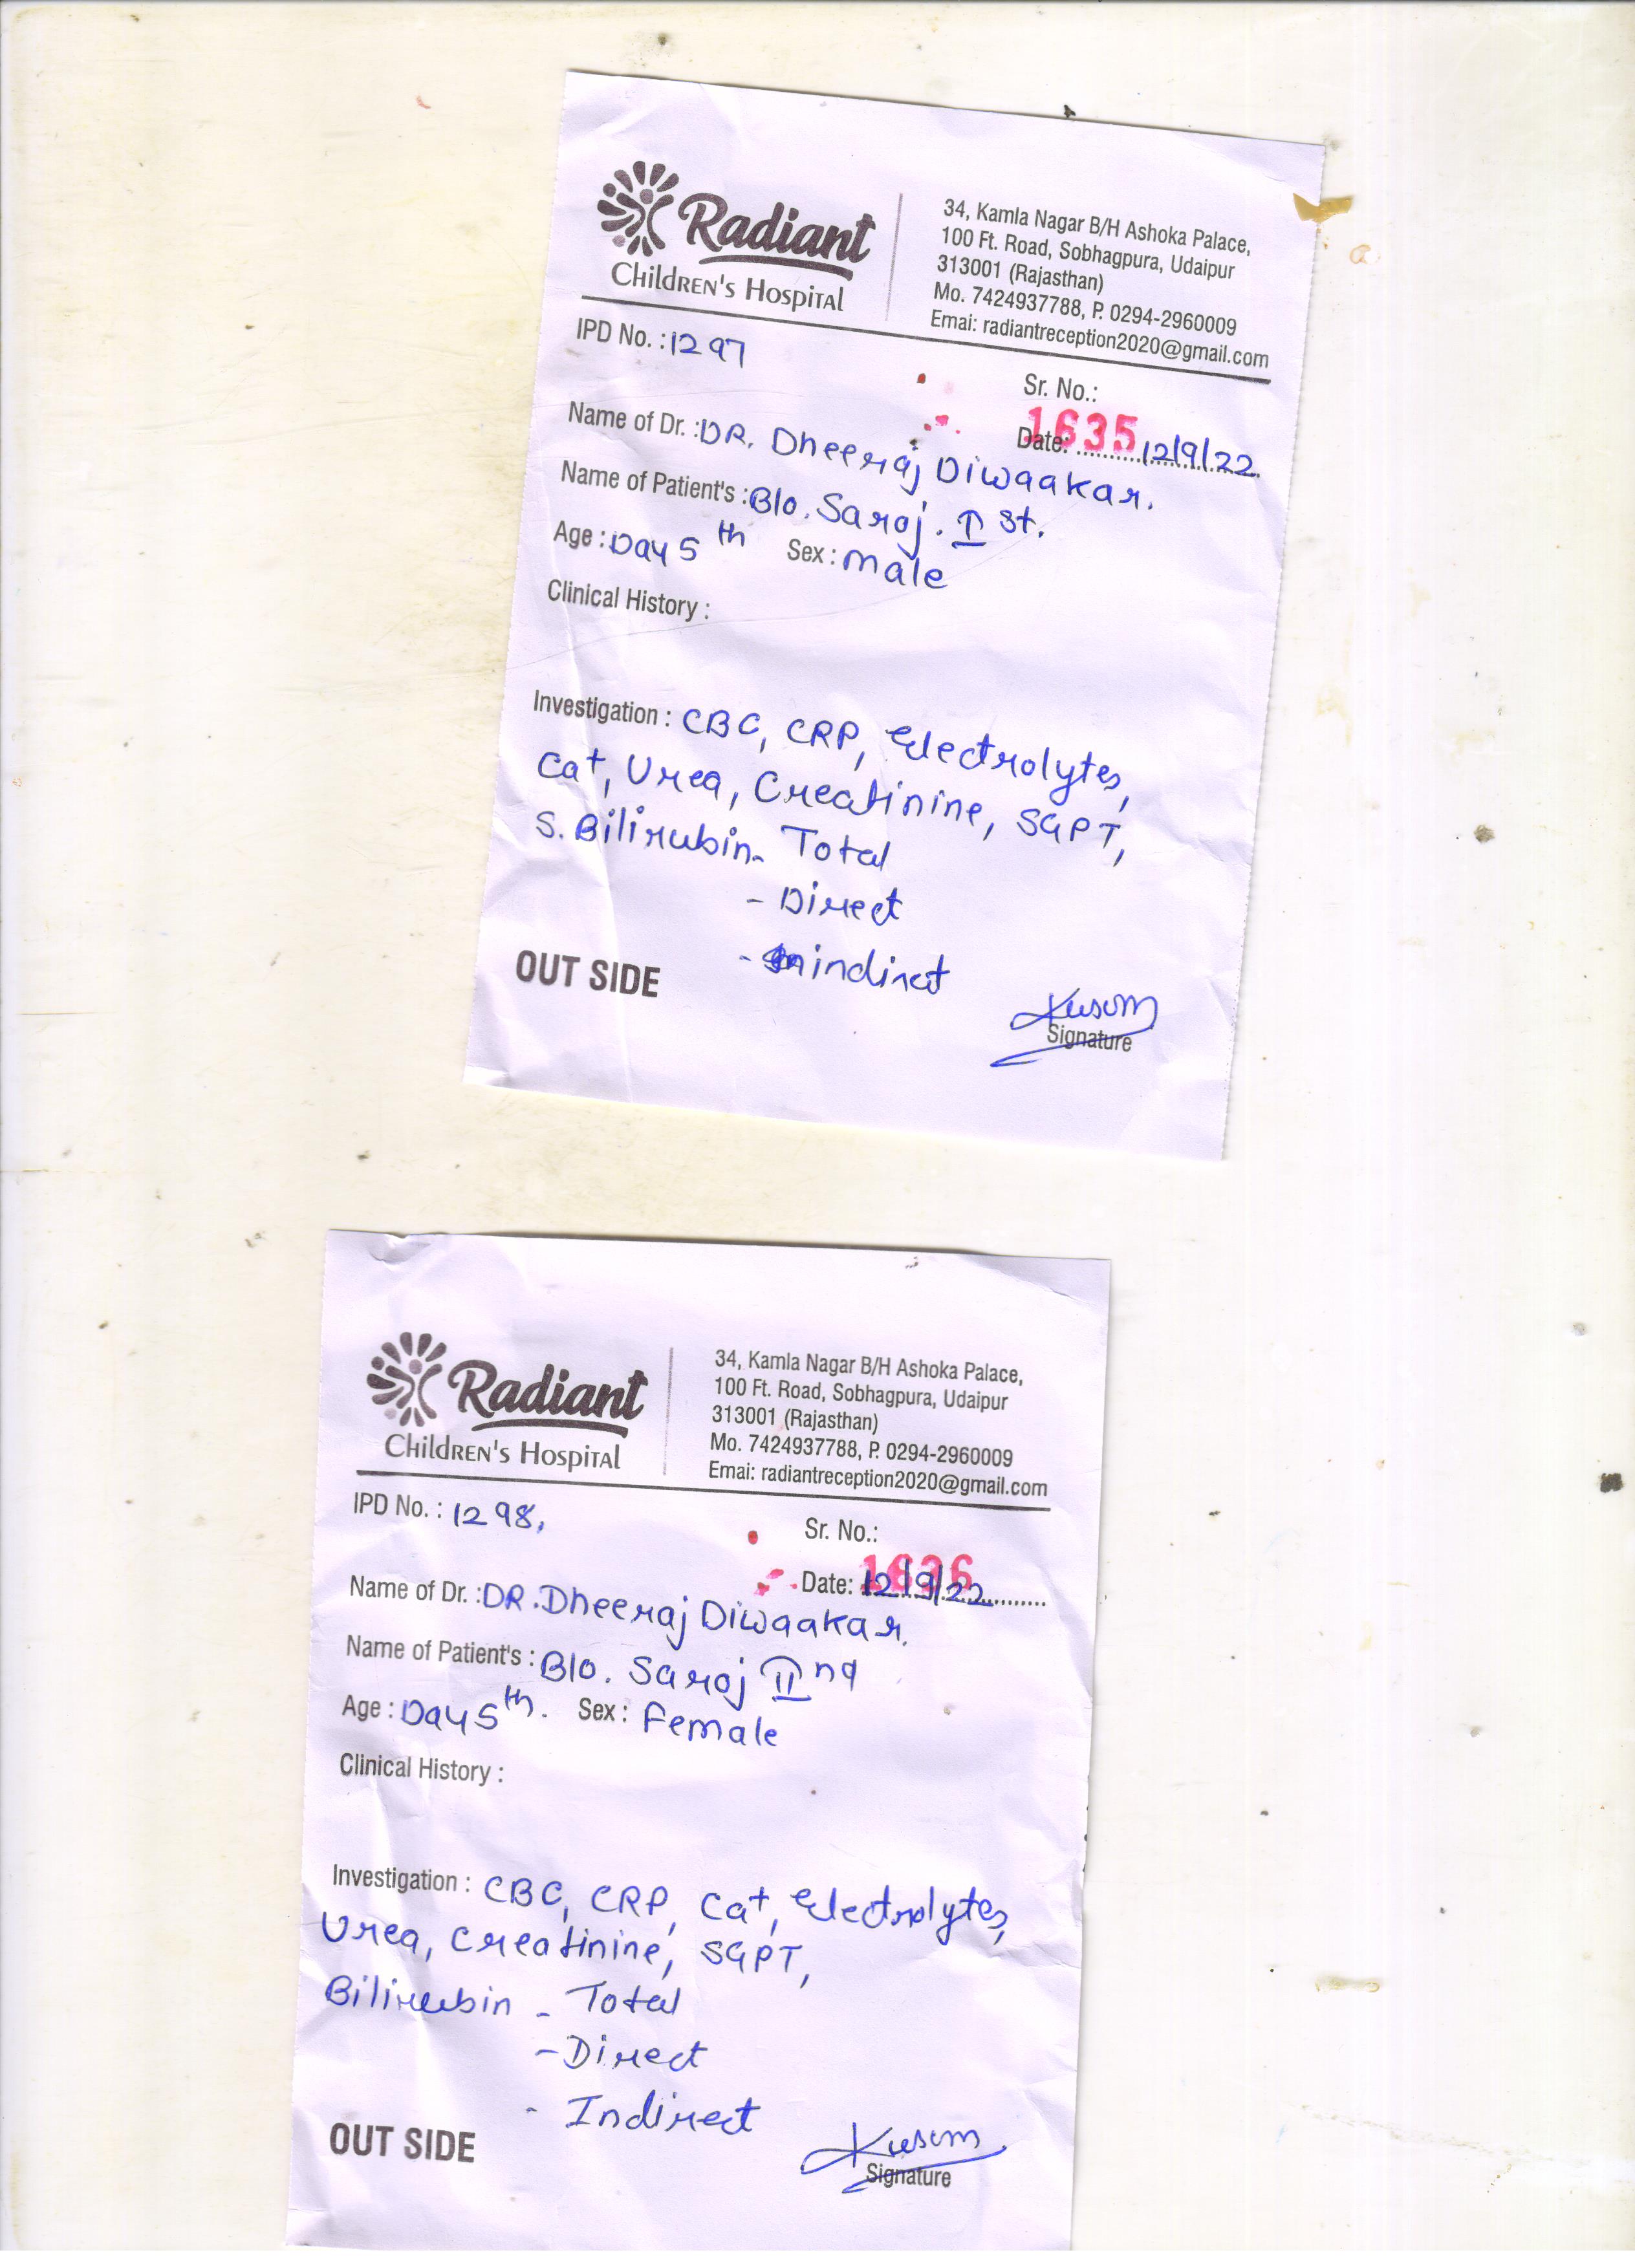 Radiant
Children's Hospital
34, Kamla Nagar B/H Ashoka Palace,
100 Ft. Road, Sobhagpura, Udaipur
313001 (Rajasthan)
Mo. 7424937788, P. 0294-2960009
Emai: radiantreception2020@gmail.com
IPD No. : 1297
Sr. No.:
1635
Date: 12/9/22
Name of Dr. : DR. Dheeraj Diwaakar.
Name of Patient's : B/o. Saroj. I st.
Age : Day 5 th Sex : male
Clinical History :
Investigation : CBC, CRP, Electrolytes,
Ca+, Urea, Creatinine, SGPT,
S. Bilirubin - Total
- Direct
- indirct
OUT SIDE
Kusum
Signature
Radiant
Children's Hospital
34, Kamla Nagar B/H Ashoka Palace,
100 Ft. Road, Sobhagpura, Udaipur
313001 (Rajasthan)
Mo. 7424937788, P. 0294-2960009
Emai: radiantreception2020@gmail.com
IPD No. : 1298,
Sr. No.:
1636
Date: 12/9/22
Name of Dr. : DR. Dheeraj Diwaakar.
Name of Patient's : B/o. Saroj II nd
Age : Day 5th. Sex : Female
Clinical History :
Investigation : CBC, CRP, Ca+, Electrolytes,
Urea, Creatinine, SGPT,
Bilirubin - Total
- Direct
- Indirect
OUT SIDE
Kusum
Signature